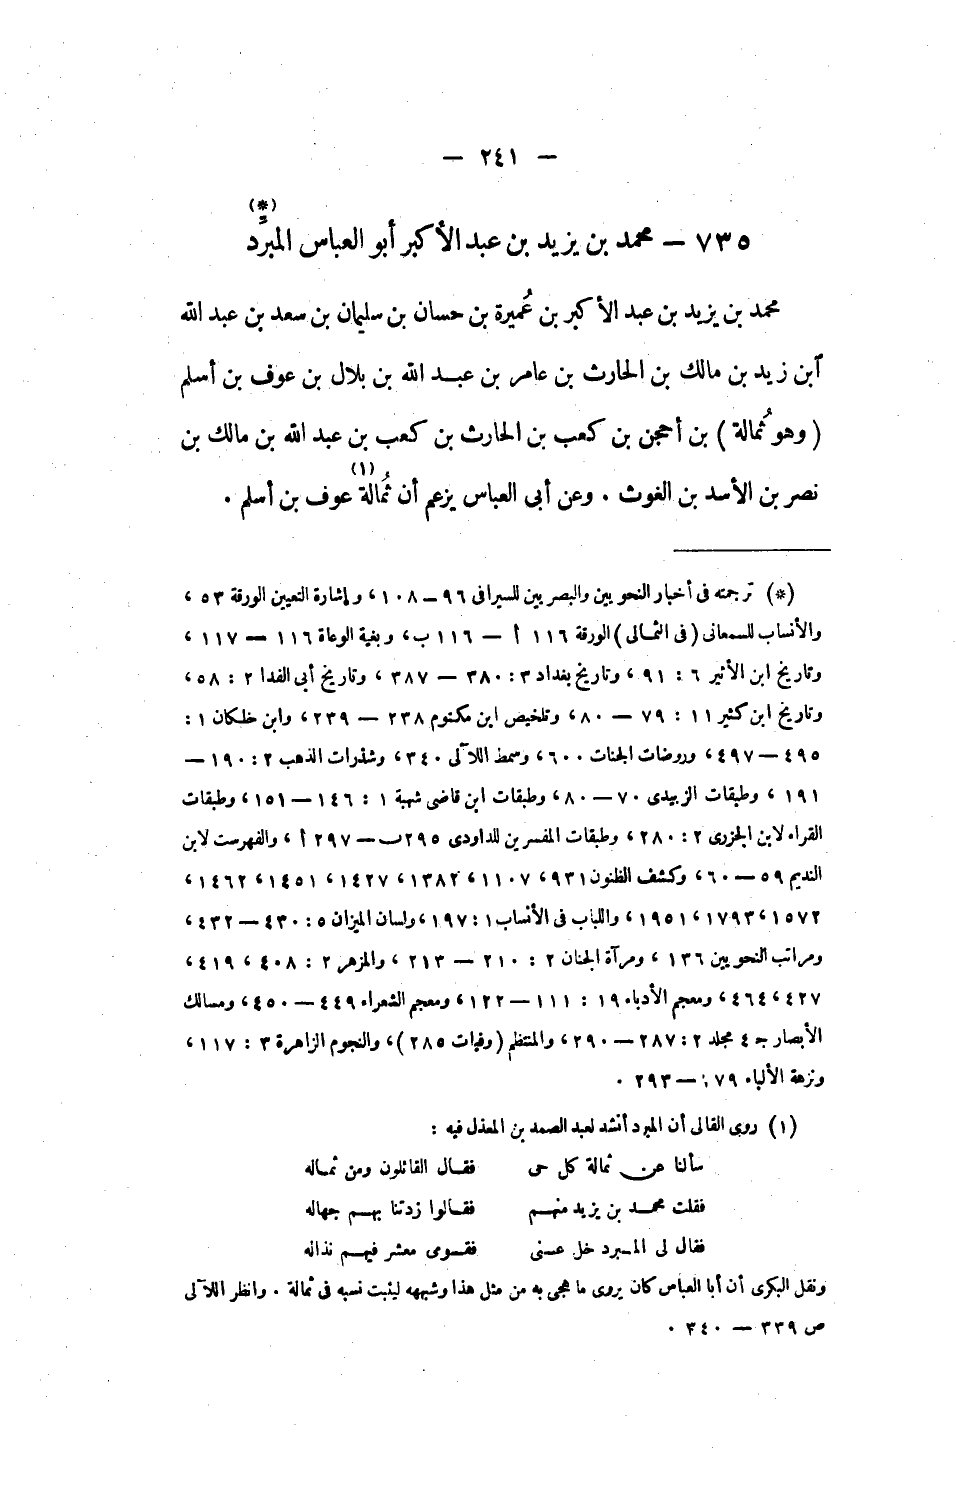 — ٢٤١ —
٧٣٥ — محمد بن يزيد بن عبد الأكبر أبو العباس المبرَّد (*)
محمد بن يزيد بن عبد الأكبر بن عُميرة بن حسان بن سليمان بن سعد بن عبد الله
ابن زيد بن مالك بن الحارث بن عامر بن عبد الله بن بلال بن عوف بن أسلم
( وهو ثُمالة ) بن أحجن بن كعب بن الحارث بن كعب بن عبد الله بن مالك بن
نصر بن الأسد بن الغوث . وعن أبى العباس يزعم أن ثُمالة (١) عوف بن أسلم .
(*) ترجمته فى أخبار النحويين والبصريين للسيرافى ٩٦ – ١٠٨ ، وإشارة التعيين الورقة ٥٣ ،
والأنساب للسمعانى ( فى الثمالى ) الورقة ١١٦ أ — ١١٦ ب ، وبغية الوعاة ١١٦ — ١١٧ ،
وتاريخ ابن الأثير ٦ : ٩١ ، وتاريخ بغداد ٣ : ٣٨٠ — ٣٨٧ ، وتاريخ أبى الفدا ٢ : ٥٨ ،
وتاريخ ابن كثير ١١ : ٧٩ — ٨٠ ، وتلخيص ابن مكتوم ٢٣٨ — ٢٣٩ ، وابن خلكان ١ :
٤٩٥ — ٤٩٧ ، وروضات الجنات ٦٠٠ ، وسمط اللآلى ٣٤٠ ، وشذرات الذهب ٢ : ١٩٠ —
١٩١ ، وطبقات الزبيدى ٧٠ — ٨٠ ، وطبقات ابن قاضى شهبة ١ : ١٤٦ — ١٥١ ، وطبقات
القراء لابن الجزرى ٢ : ٢٨٠ ، وطبقات المفسرين للداودى ٢٩٥ ب — ٢٩٧ أ ، والفهرست لابن
النديم ٥٩ — ٦٠ ، وكشف الظنون ٩٣١ ، ١١٠٧ ، ١٣٨٢ ، ١٤٢٧ ، ١٤٥١ ، ١٤٦٢ ،
١٥٧٢ ، ١٧٩٣ ، ١٩٥١ ، واللباب فى الأنساب ١ : ١٩٧ ، ولسان الميزان ٥ : ٤٣٠ — ٤٣٢ ،
ومراتب النحويين ١٣٦ ، ومرآة الجنان ٢ : ٢١٠ — ٢١٣ ، والمزهر ٢ : ٤٠٨ ، ٤١٩ ،
٤٢٧ ، ٤٦٤ ، ومعجم الأدباء ١٩ : ١١١ — ١٢٢ ، ومعجم الشعراء ٤٤٩ — ٤٥٠ ، ومسالك
الأبصار جـ ٤ مجلد ٢ : ٢٨٧ — ٢٩٠ ، والمنتظم ( وفيات ٢٨٥ ) ، والنجوم الزاهرة ٣ : ١١٧ ،
ونزهة الألباء — ٢٩٣ .
(١) روى القالى أن المبرد أنشد لعبد الصمد بن المعذل فيه :
سألنا عن ثمالة كل حى فقال القائلون ومن ثماله
فقلت محمد بن يزيد منهم فقالوا زدتنا بهم جهاله
فقال لى المبرد خل عنى فقومى معشر فيهم نذاله
ونقل البكرى أن أبا العباس كان يروى ما هجى به من مثل هذا وشبهه ليثبت نسبه فى ثمالة . وانظر اللآلى
ص ٣٣٩ — ٣٤٠ .